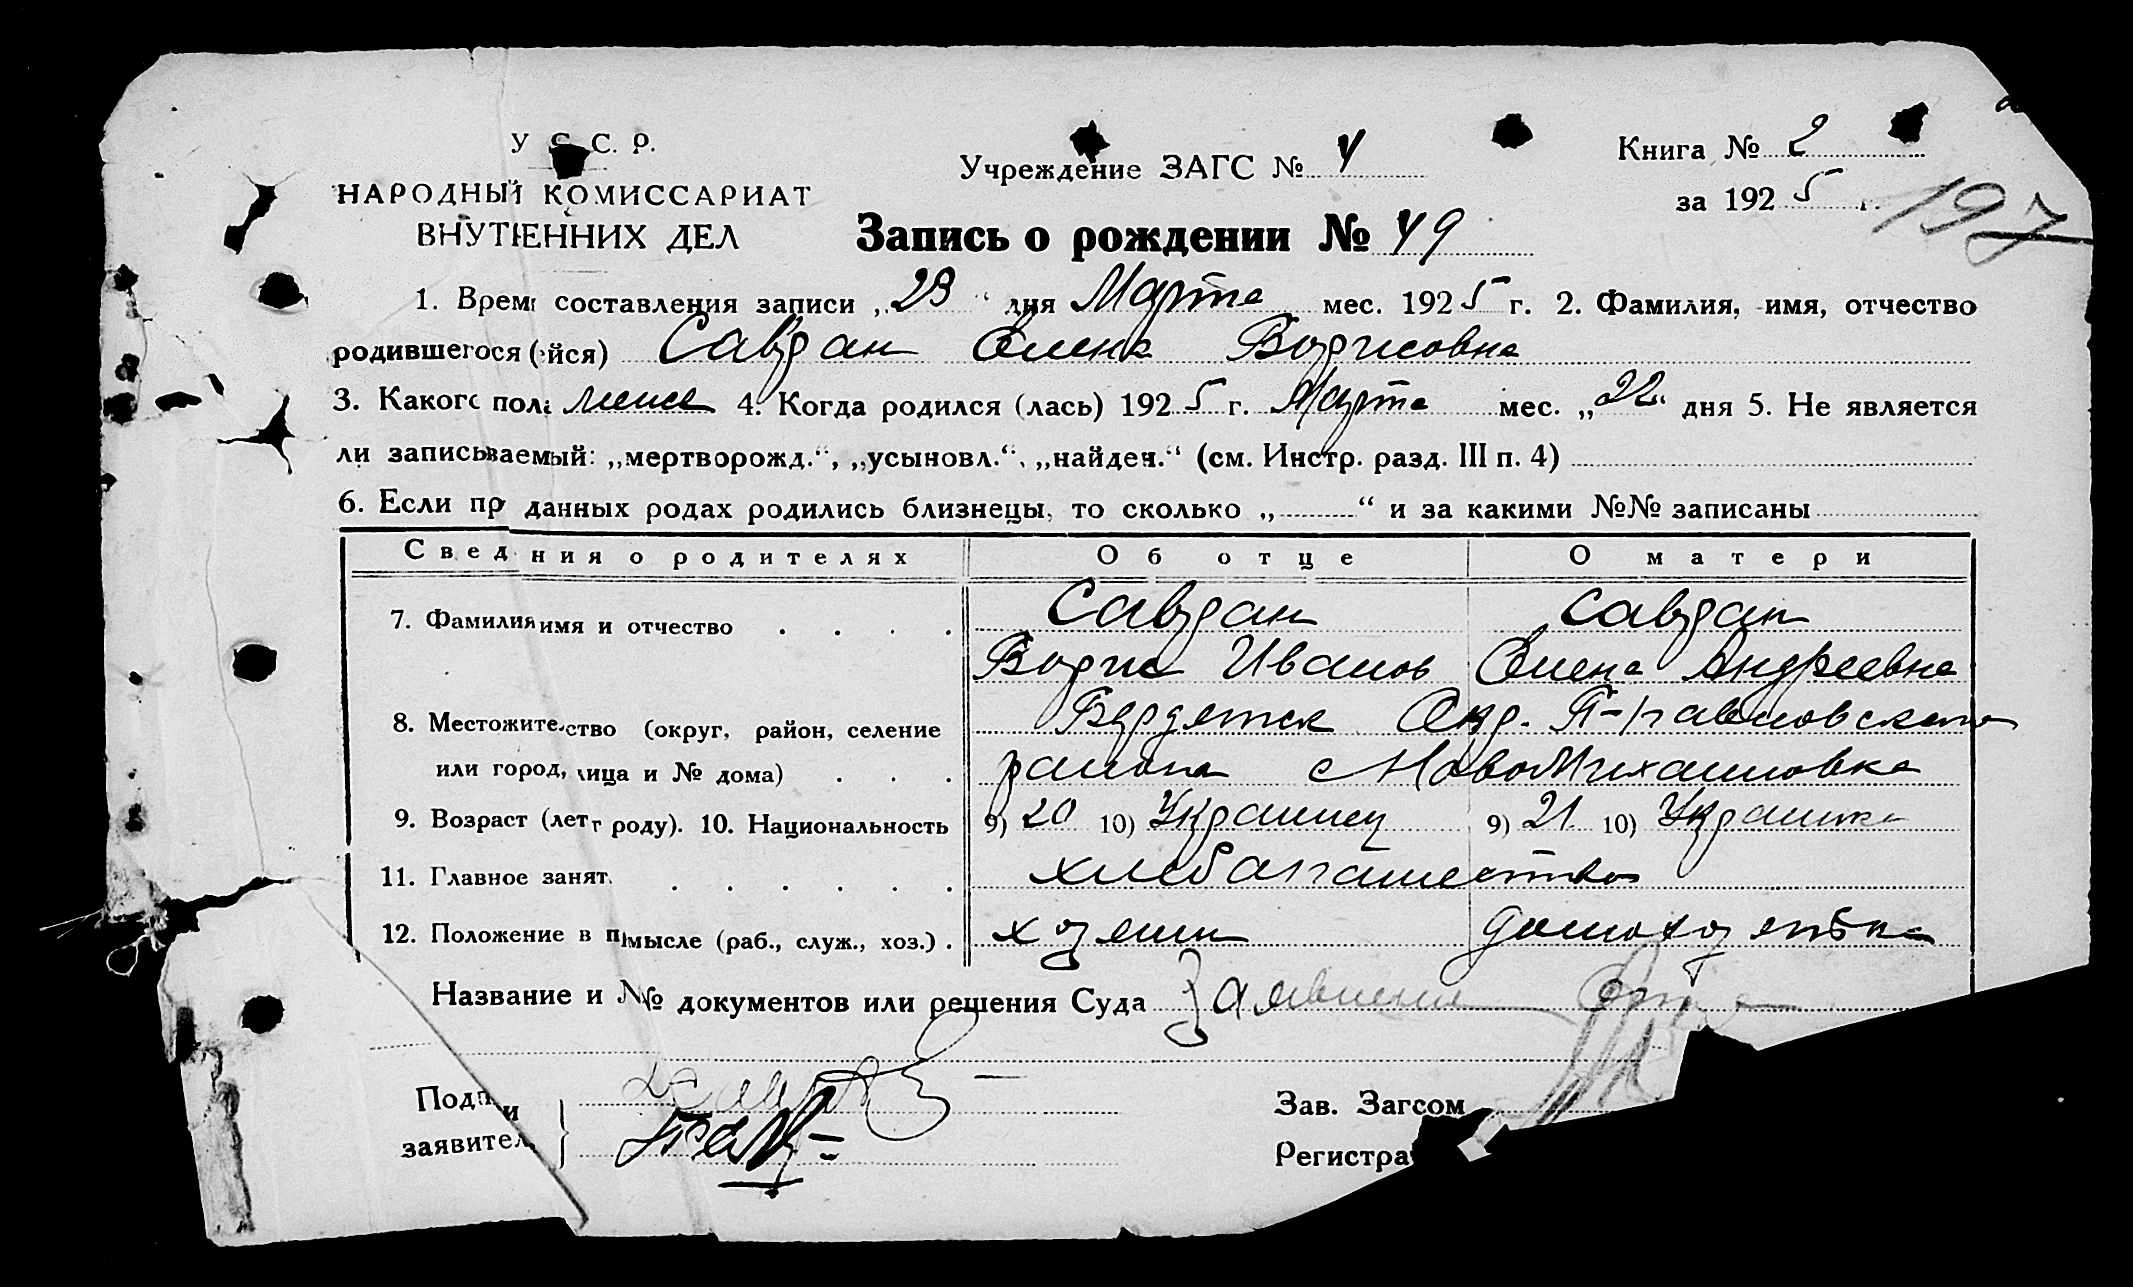 У. С. С. Р.
НАРОДНЫЙ КОМИССАРИАТ
ВНУТРЕННИХ ДЕЛ
Учреждение ЗАГС № 4
Книга № 2
за 1925 г.
197
Запись о рождении № 49
1. Время составления записи „23“ дня Марта мес. 1925 г. 2. Фамилия, имя, отчество
родившегося (ейся) Савран Елена Борисовна
3. Какого пола женс 4. Когда родился (лась) 1925 г. Марта мес. „22“ дня 5. Не является
ли записываемый: „мертворожд.“, „усыновл.“, „найден.“ (см. Инстр. разд. III п. 4)
6. Если при данных родах родились близнецы, то сколько „ “ и за какими №№ записаны
Сведения о родителях Об отце О матери
7. Фамилия имя и отчество Савран Савран
Борис Иванов Елена Андреевна
8. Местожительство (округ, район, селение Бердянск Окр. П-Павловского
или город, улица и № дома) района с НовоМихайловка
9. Возраст (лет от роду). 10. Национальность 9) 20 10) Украинец 9) 21 10) Украинка
11. Главное занят. хлебапашество
12. Положение в промысле (раб., служ., хоз.) хозяин домохозяйка
Название и № документов или решения Суда Заявление
Подписи
заявител.
Зав. Загсом
Регистра